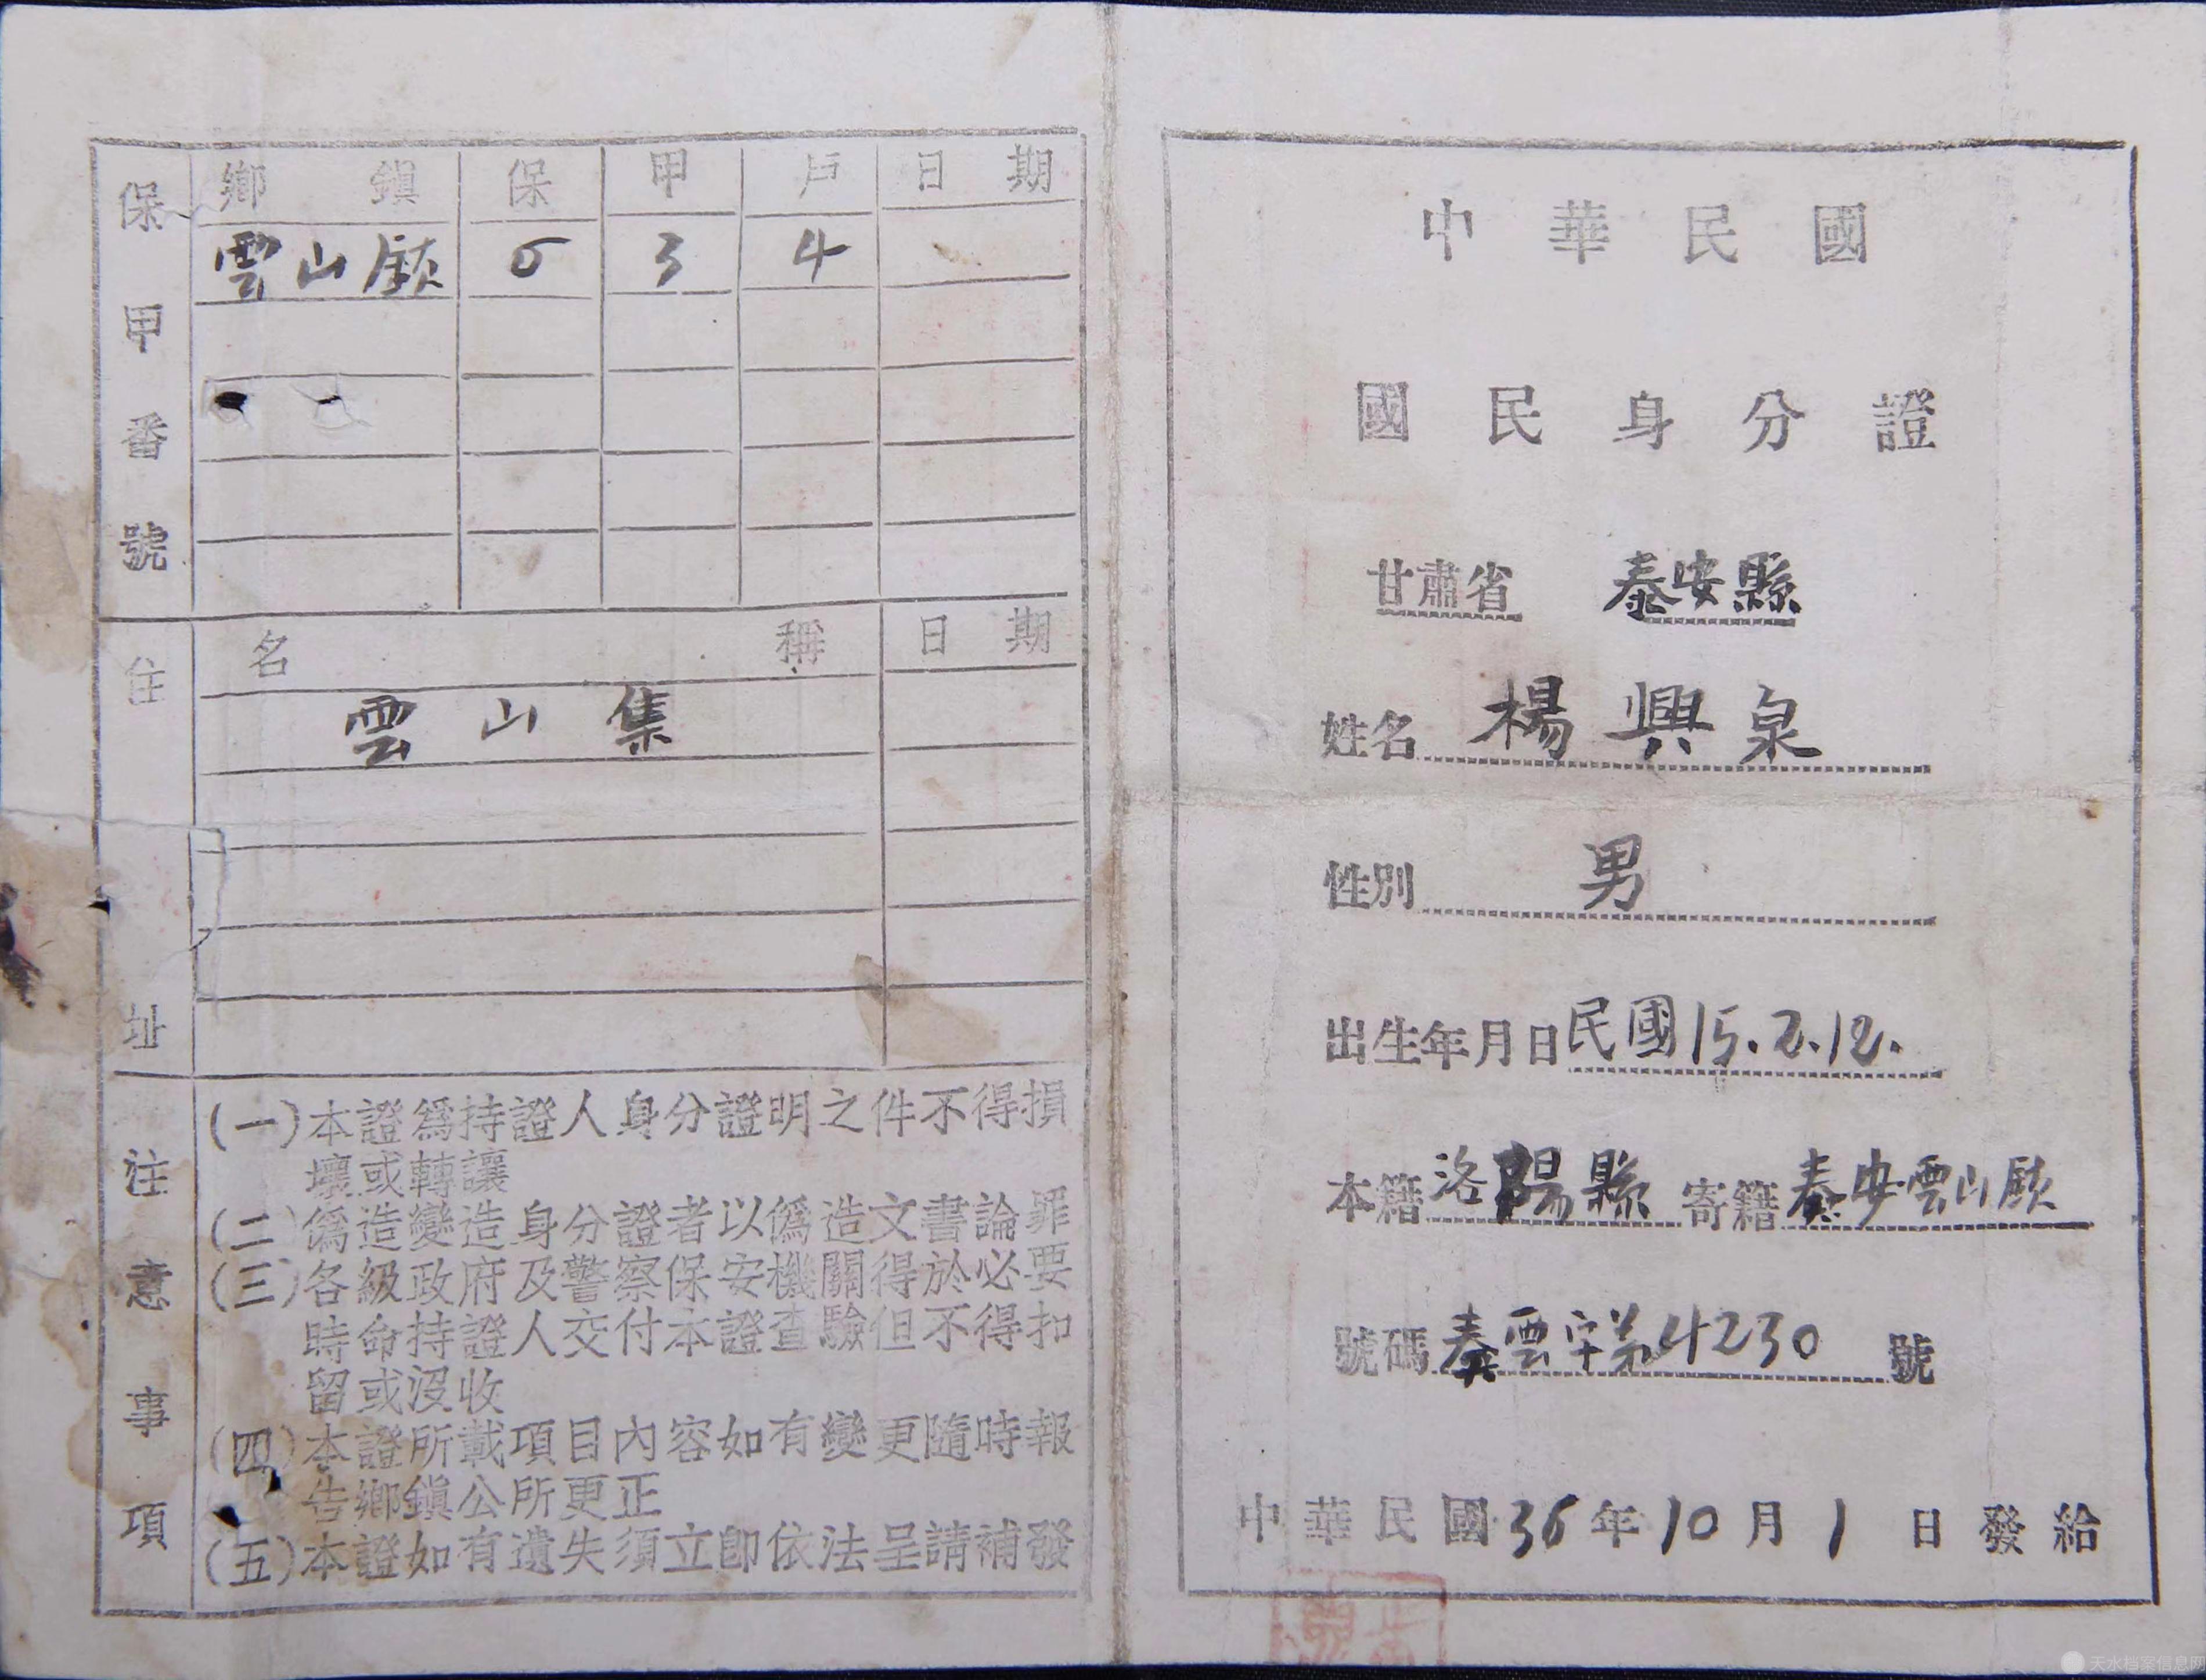 保甲番號
鄉鎮 保 甲 戶 日期
雲山鎮 6 3 4
住址
名稱 日期
雲山集
注意事項
(一)本證爲持證人身分證明之件不得損
壞或轉讓
(二)僞造變造身分證者以僞造文書論罪
(三)各級政府及警察保安機關得於必要
時命持證人交付本證查驗但不得扣
留或沒收
(四)本證所載項目內容如有變更隨時報
告鄉鎮公所更正
(五)本證如有遺失須立卽依法呈請補發
中華民國
國民身分證
甘肅省 秦安縣
姓名 楊興泉
性別 男
出生年月日 民國15.2.12.
本籍 洛陽縣 寄籍 秦安雲山鎮
號碼 秦雲字第4230 號
中華民國36年10月1日發給
天水档案信息网